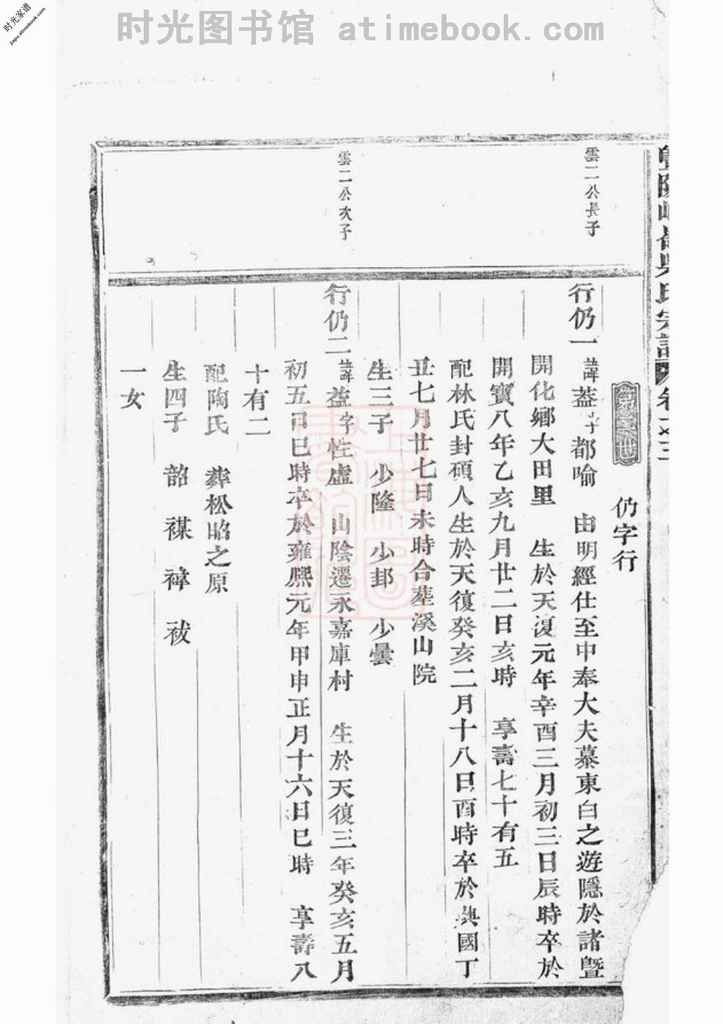 时光图书馆 atimebook.com
时光家谱
jiapu.atimebook.com
吳氏宗譜
仍字行
雲二公長子
行仍一 諱蓋字都喻 由明經仕至中奉大夫慕東白之遊隱於諸暨
開化鄉大田里 生於天復元年辛酉三月初三日辰時卒於
開寶八年乙亥九月廿二日亥時 享壽七十有五
配林氏封碩人生於天復癸亥二月十八日酉時卒於興國丁
丑七月廿七日未時合葬溪山院
生三子 少隆 少邦 少曇
雲二公次子
行仍二 諱益字性虛 山陰遷永嘉庫村 生於天復三年癸亥五月
初五日巳時卒於雍熙元年甲申正月十六日巳時 享壽八
十有二
配陶氏 葬松昭之原
生四子 韶 禖 禕 祓
一女